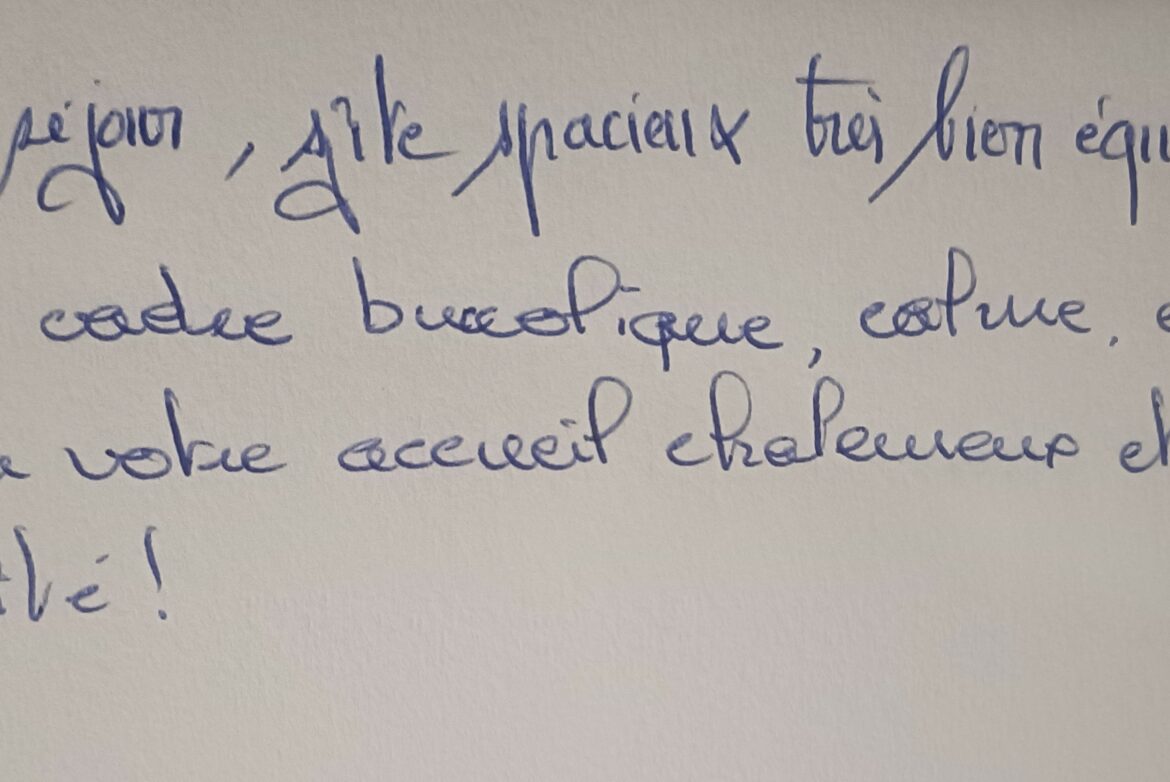 séjour, gîte spacieux très bien équi
cadre bucolique, calme,
votre accueil chaleureux et
té !